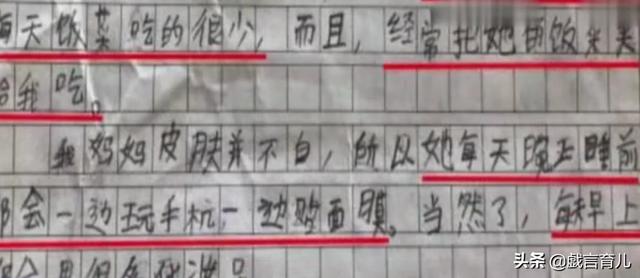 每天饭菜吃的很少，而且，经常把她的饭
给我吃。
我妈妈皮肤并不白，所以她每天晚上睡前
都会一边玩手机一边贴面膜。当然了，每早上
头条 @戯言育儿